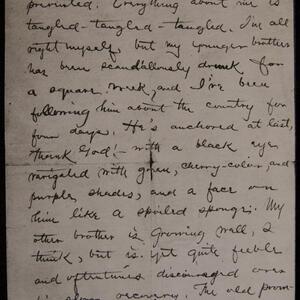 prevented. Everything about me is
tangled – tangled – tangled. I'm all
right myself, but my younger brother
has been scandalously drunk for
a square week, and I've been
following him about the country for
four days. He's anchored at last,
thank God! – with a black eye,
variegated with green, cherry-color, and
purple shades, and a face on
him like a spoiled sponge. My
other brother is growing well, I
think, but is yet quite feeble
and oftentimes discouraged over
his slow recovery. The old prom-